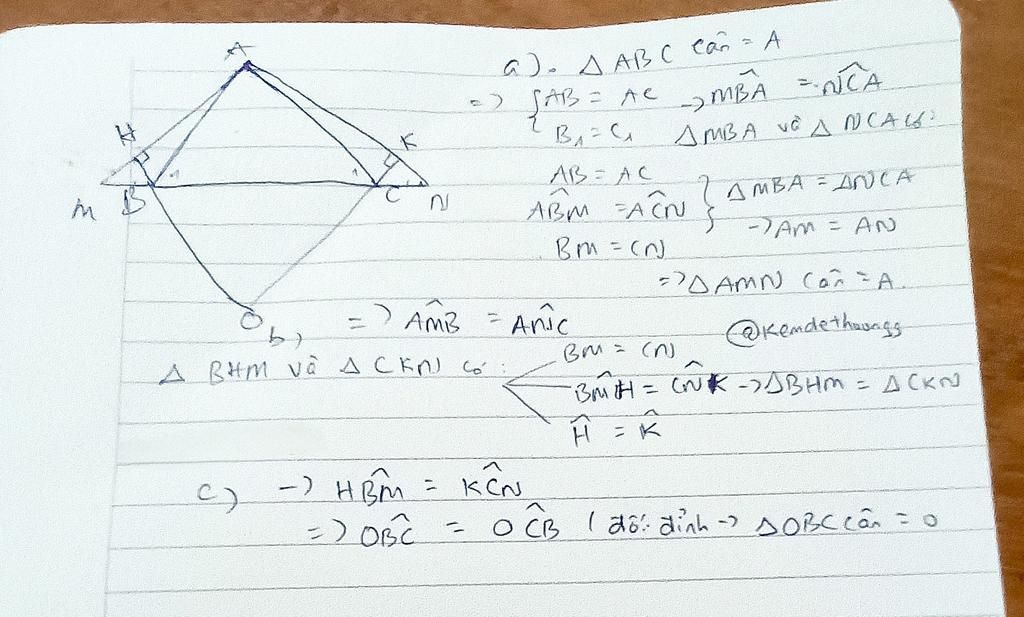 A
H
K
M
B
1
1
C
N
O
a). Δ ABC cân = A
=> { AB = AC -> MB̂A = NĈA
B₁ = C₁ Δ MBA và Δ NCA có:
AB = AC
AB̂M = AĈN } Δ MBA = ΔNCA
BM = CN -> AM = AN
=> Δ AMN cân = A
b) => AM̂B = AN̂C
@Kemdethuongg
Δ BHM và Δ CKN có:
BM = CN
BM̂H = CN̂K -> ΔBHM = ΔCKN
Ĥ = K̂
c) -> HB̂M = KĈN
=> OB̂C = OĈB ( đối đỉnh -> Δ OBC cân = O